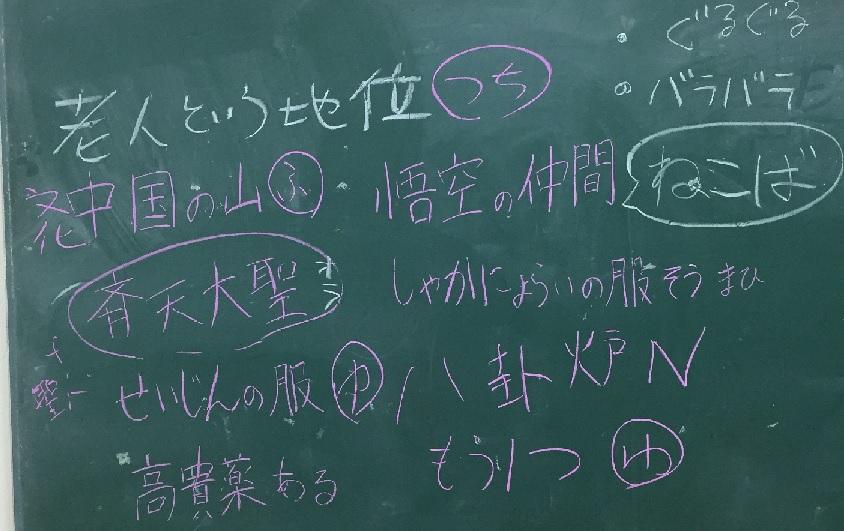 ・ぐるぐる
・バラバラ
老人という地位 つち
中国の山 ふ ・悟空の仲間 ねこば
斉天大聖 オラ しゃかにょらいの服そう まひ
せいじんの服 ゆ 八卦炉N
高貴薬ある もう1つ ゆ